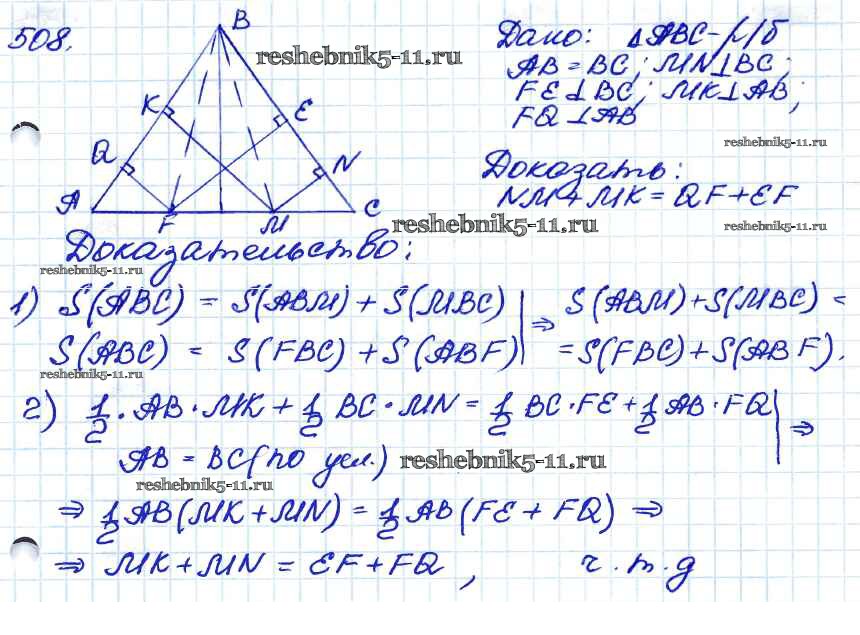 508.
B
K
E
Q
N
A
F
M
C
reshebnik5-11.ru
Дано: △ABC-р/б
AB = BC; MN⊥BC;
FE⊥BC; MK⊥AB;
FQ⊥AB
reshebnik5-11.ru
Доказать:
NM + MK = QF + EF
reshebnik5-11.ru
reshebnik5-11.ru
Доказательство:
reshebnik5-11.ru
1) S(ABC) = S(ABM) + S(MBC) | ⇒ S(ABM)+S(MBC) =
S(ABC) = S(FBC) + S(ABF) | = S(FBC)+S(ABF).
reshebnik5-11.ru
2) 1/2 · AB · MK + 1/2 BC · MN = 1/2 BC · FE + 1/2 AB · FQ | ⇒
AB = BC (по усл.)
reshebnik5-11.ru
reshebnik5-11.ru
⇒ 1/2 AB (MK + MN) = 1/2 AB (FE + FQ) ⇒
⇒ MK + MN = EF + FQ, ч.т.д